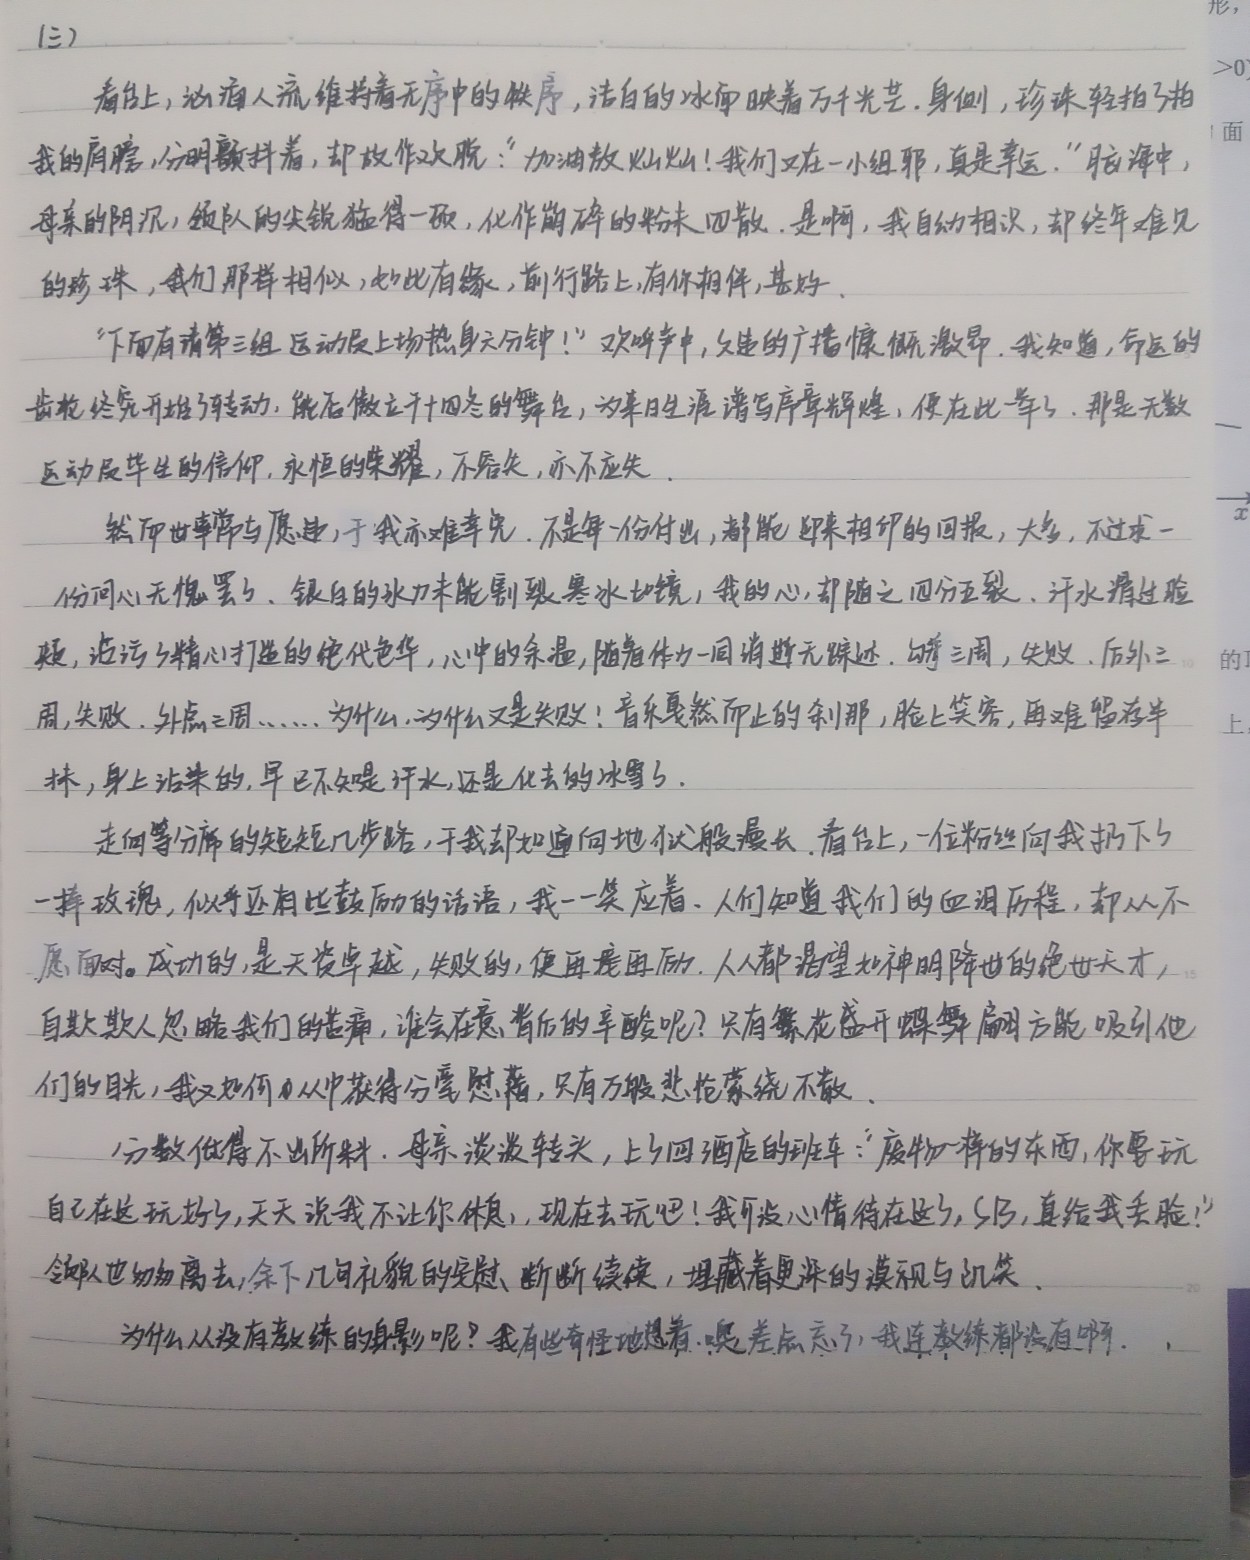 (三)
看台上，汹涌人流维持着无序中的秩序，洁白的冰面映着万千光芒．身侧，珍珠轻拍了拍
我的肩膀，分明颤抖着，却故作欢脱：“加油敖灿灿！我们又在一小组耶，真是幸运．”脑海中，
母亲的阴沉，领队的尖锐猛得一顿，化作崩碎的粉末四散．是啊，我自幼相识，却终年难见
的珍珠，我们那样相似，如此有缘，前行路上，有你相伴，甚好．
“下面有请第三组运动员上场热身六分钟！”欢呼声中，久违的广播慷慨激昂．我知道，命运的
齿轮终究开始了转动，能否傲立于十四冬的舞台，为来日生涯谱写序章辉煌，便在此一举了．那是无数
运动员毕生的信仰，永恒的荣耀，不容失，亦不应失．
然而世事常与愿违，于我亦难幸免．不是每一份付出，都能迎来相印的回报，大多，不过求一
份问心无愧罢了．银白的冰刀未能割裂寒冰如镜，我的心，却随之四分五裂．汗水滑过脸
颊，沾污了精心打造的绝代色华，心中的余温，随着体力一同消逝无踪迹．勾手三周，失败．后外三
周，失败．外点三周……为什么，为什么又是失败！音乐戛然而止的刹那，脸上笑容，再难留存半
抹，身上沾染的，早已不知是汗水，还是化去的冰雪了．
走向等分席的短短几步路，于我却如通向地狱般漫长．看台上，一位粉丝向我扔下了
一捧玫瑰，似乎还有些鼓励的话语，我一一笑应着．人们知道我们的血泪历程，却从不
愿面对。成功的，是天资卓越，失败的，便再接再励．人人都渴望如神明降世的绝世天才，
自欺欺人忽略我们的苦痛，谁会在意背后的辛酸呢？只有繁花盛开蝶舞翩翩方能吸引他
们的目光，我又如何从中获得分毫慰藉，只有万般悲怆萦绕不散．
分数低得不出所料．母亲淡淡转头，上了回酒店的班车：“废物一样的东西，你要玩
自己在这玩好了，天天说我不让你休息，现在去玩吧！我可没心情待在这了，SB，真给我丢脸！”
领队也匆匆离去，余下几句礼貌的安慰、断断续续，埋藏着更深的漠视与讥笑．
为什么从没有教练的身影呢？我有些奇怪地想着．噢差点忘了，我连教练都没有啊．
形，
>0)
面
x
的
上，
10
15
20